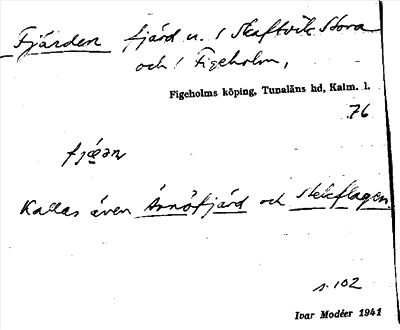 Fjärden fjärd u. / Skaftvik Stora
och / Figeholm,
Figeholms köping, Tunaläns hd, Kalm. l.
76
fjä̱ən
Kallas även Årnöfjärd och
s. 102
Ivar Modéer 1941